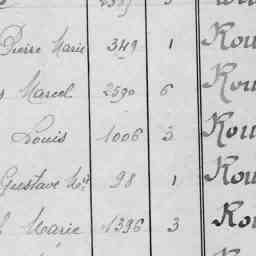 Pierre Marie 349 1 Rou
Marcel 2590 6 Rou
Louis 1006 3 Rou
Gustave Mie 98 1 Rou
Marie 1396 3 Rou